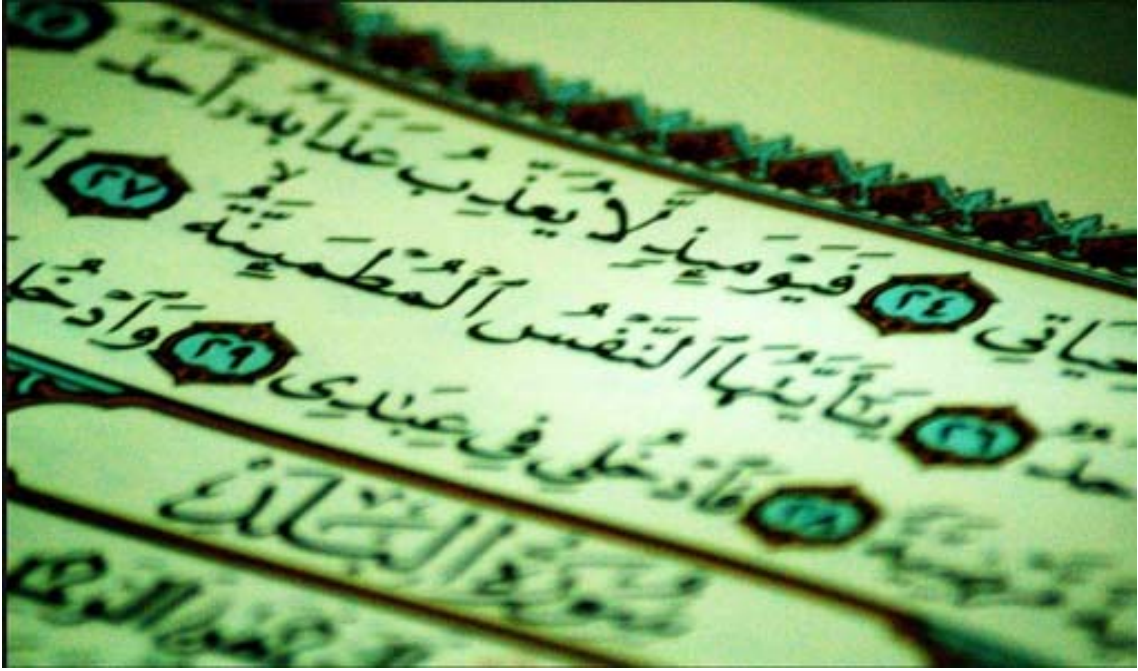 لِحَيَاتِي ٢٤ فَيَوْمَئِذٍ لَّا يُعَذِّبُ عَذَابَهُۥٓ أَحَدٌ ٢٥
٢٦ يَٰٓأَيَّتُهَا ٱلنَّفْسُ ٱلْمُطْمَئِنَّةُ ٢٧
٢٨ فَٱدْخُلِي فِي عِبَٰدِي ٢٩ وَٱدْخُلِي
سُورَةُ الْبَلَدِ